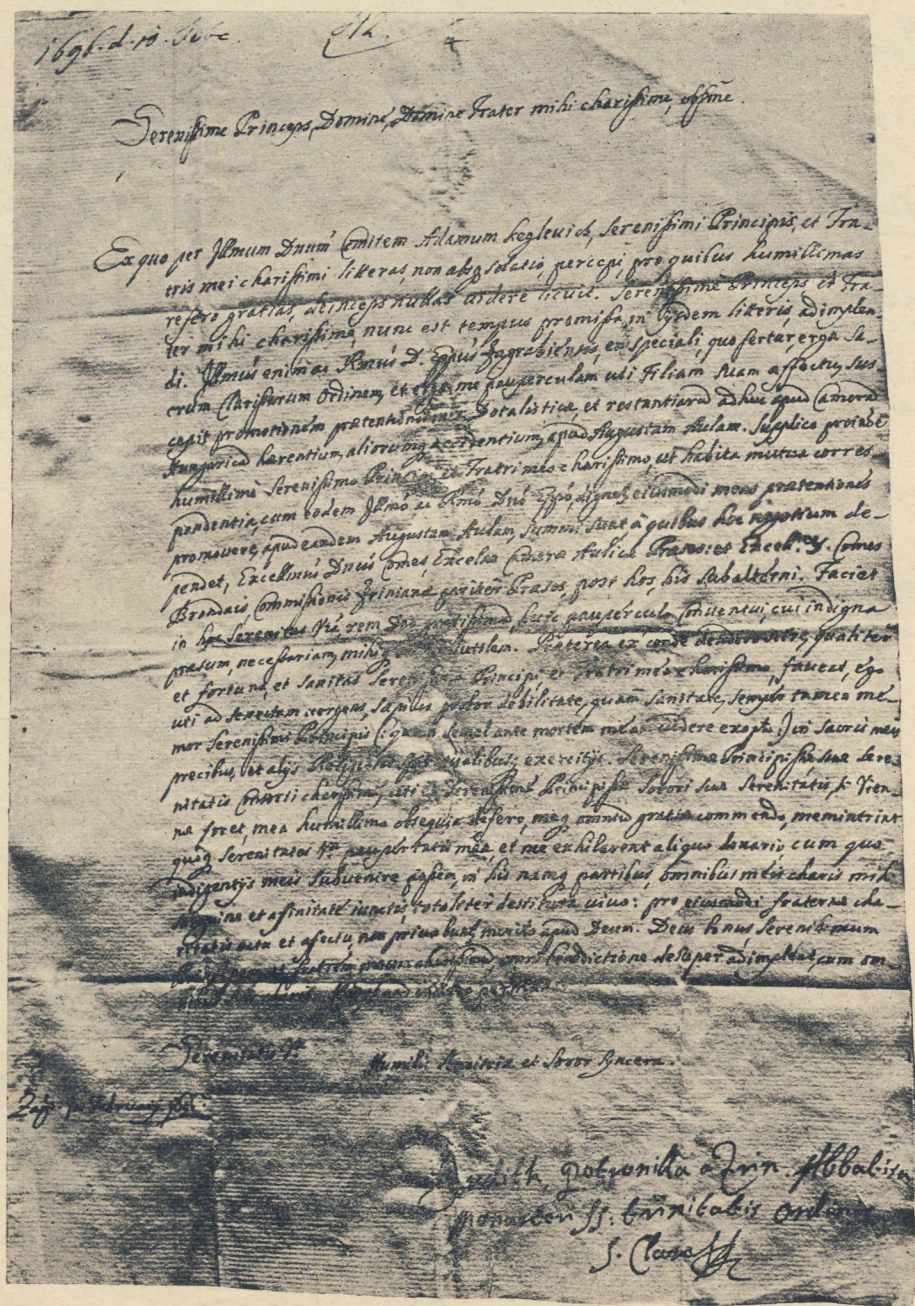 1696. d. 10.
Serenissime Princeps, Domine, Domine Frater mihi charissime, obssme.
Ex quo per Illmum Dnum Comitem Adamum Keglevich, Serenissimi Principis, et Fra-
tris mei charissimi litteras, non absq solatio, percepi, pro quibus humillimas
refero gratias, deinceps nullas videre licuit. Serenissime Princeps et Fra-
ter mihi charissime, nunc est tempus promissa in ijsdem litteris, adimplen-
di. Illmus enim ac Rmus D. Eppus Zagrabiensis, ex speciali, quo fertur erga Sa-
crum Clarissarum Ordinem, et erga me pauperculam uti Filiam suam affectu, sus
cepit promotionem praetensionum Dotalistica, et restantiarum adhuc apud Cameram
Hungaricam haerentium, aliorumq accidentium, apud Augustam Aulam. Supplico proinde
humillime Serenissimo Principi et Fratri meo charissimo, ut habita mutua corres-
pondentia, cum eodem Illmo ac Rmo Dno Eppo, dignet eiusmodi meas praetensiones
promovere, apud eandem Augustam Aulam, Summi sunt à quibus hoc negotium de-
pendet, Excellmus Dnus Comes, Excelsae Camerae Aulicae Praeses: et Comes
Brondais Commissionis Zriniana pariter Praeses, post hos, his subalterni. Faciet
in hoc Serenitas Vra, rem Deo gratissimam, huic pauperculo Conventui, cui indigna
praesum, necessariam, mihi Praeterea ex corde qualiter
et fortuna, et sanitas Serenissimo Principi, et Fratri meo charissimo, faveat, ego
uti ad senectam vergens, saepius protor debilitate, quam sanitate, semper tamen me-
mor Serenissimi Principis (: quem semel ante mortem meam videre exopto :) in sacris meis
precibus, et alys exercitijs. Serenissimae Principissae suae Sere-
nitatis Consorti Serenissimae Principissae Sorori suae Serenitatis, si Vien-
nae foret, mea humillima obsequia defero, meq omnium gratiae commendo, meminerint
quoq Serenitates Vrae paupertatis meae et me exhilarent aliquo donario, cum quo
indigentijs meis subvenire possem, in his namq partibus, omnibus meis charis mihi
sanguine et affinitate iunctis, totaliter destituta vivo: pro eiusmodi fraternae cha-
ritatis actu et afectu, non privabunt munito apud Deum. Deus bonus Serenissimum
omni benedictione desuper adimpleat, cum om-
Serenitatis Vrae
Humilis Servitrix et Soror syncera.
Judith, Petronilla a Zrin. Abbatissa
Monasterii SS. trinitatis ordinis
S. Clarae